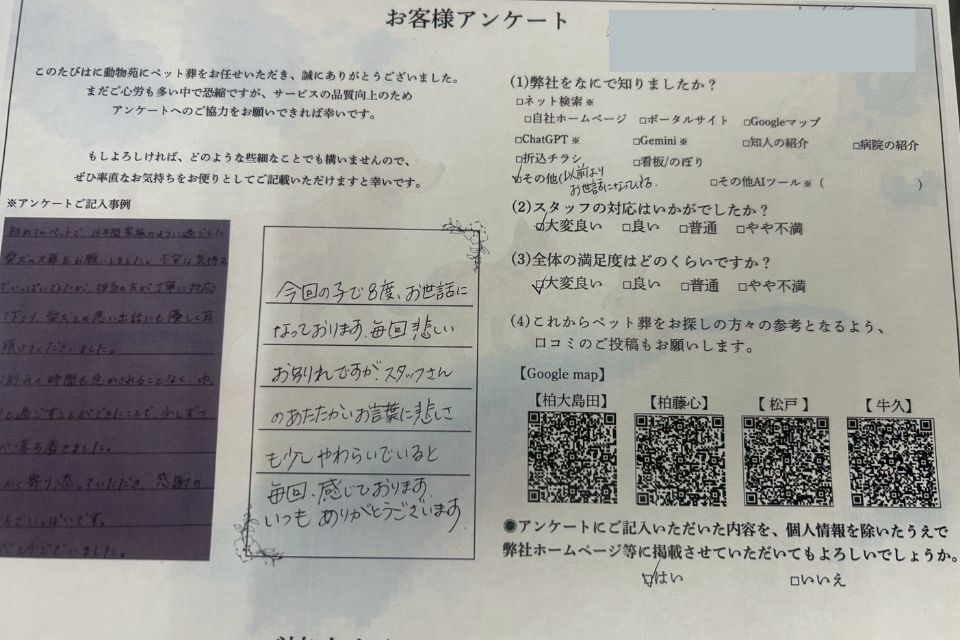 お客様アンケート
このたびはに動物苑にペット葬をお任せいただき、誠にありがとうございました。
まだご心労も多い中で恐縮ですが、サービスの品質向上のため
アンケートへのご協力をお願いできれば幸いです。
もしよろしければ、どのような些細なことでも構いませんので、
ぜひ率直なお気持ちをお便りとしてご記載いただけますと幸いです。
※アンケートご記入事例
初めてのペットで、15年間家族のように過ごした
愛犬の火葬をお願いしました。不安な気持ち
でいっぱいでしたが、担当の方が丁寧に対応
下さり、愛犬との思い出話にも優しく耳
傾けてくださいました。
お別れの時間も急かされることなく、ゆ
りと過ごすことができたことで、少しずつ
心が落ち着きました。
寄り添っていただき、感謝の
ちでいっぱいです。
とうございました。
今回の子で8度、お世話に
なっております。毎回悲しい
お別れですが、スタッフさん
のあたたかいお言葉に悲しさ
も少しやわらいでいると
毎回、感じております。
いつもありがとうございます。
(1)弊社をなにで知りましたか？
□ネット検索※
□自社ホームページ □ポータルサイト □Googleマップ
□ChatGPT※ □Gemini※ □知人の紹介 □病院の紹介
□折込チラシ □看板/のぼり
☑その他(以前より
お世話になっている。
□その他AIツール※( )
(2)スタッフの対応はいかがでしたか？
☑大変良い □良い □普通 □やや不満
(3)全体の満足度はどのくらいですか？
☑大変良い □良い □普通 □やや不満
(4)これからペット葬をお探しの方々の参考となるよう、
口コミのご投稿もお願いします。
【Google map】
【柏大島田】 【柏藤心】 【松戸】 【牛久】
●アンケートにご記入いただいた内容を、個人情報を除いたうえで
弊社ホームページ等に掲載させていただいてもよろしいでしょうか。
☑はい □いいえ